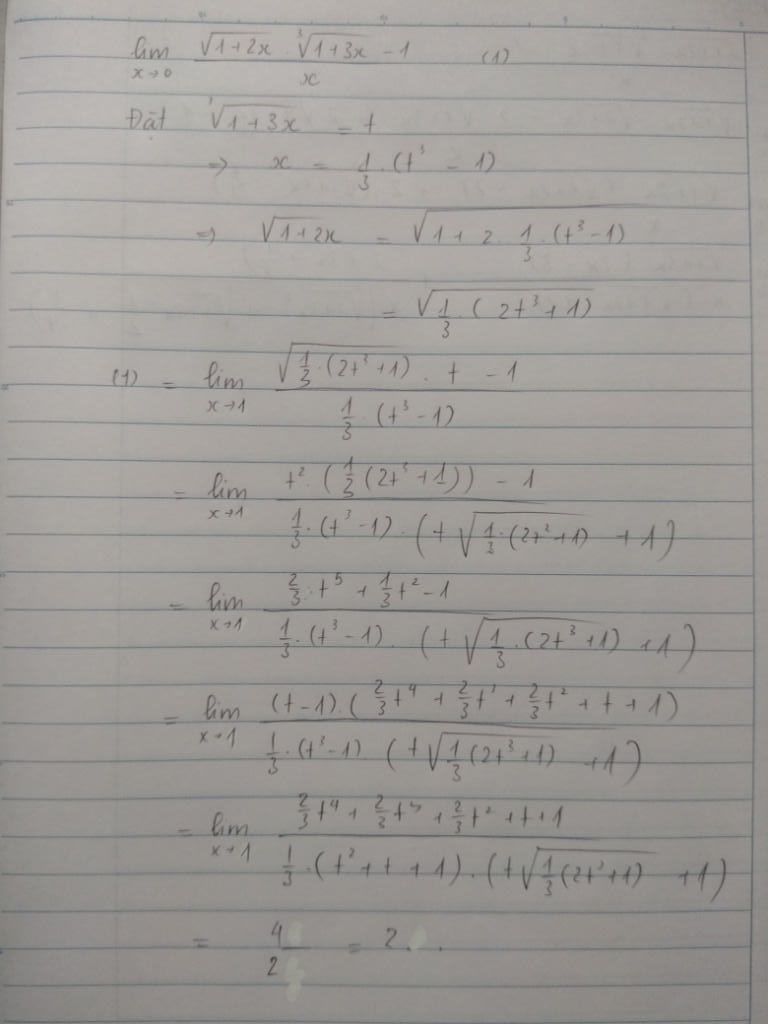 lim x→0 (√(1+2x) · ∛(1+3x) − 1) / x (1)
Đặt ∛(1+3x) = t
⇒ x = 1/3 · (t³ − 1)
⇒ √(1+2x) = √(1 + 2 · 1/3 · (t³−1))
= √(1/3 · (2t³+1))
(1) = lim x→1 (√(1/3 · (2t³+1)) · t − 1) / (1/3 · (t³−1))
= lim x→1 (t² · (1/3 (2t³+1)) − 1) / (1/3 · (t³−1) · (t√(1/3 · (2t³+1)) + 1))
= lim x→1 (2/3 · t⁵ + 1/3 t² − 1) / (1/3 · (t³−1) · (t√(1/3 · (2t³+1)) + 1))
= lim x→1 ((t−1) · (2/3 t⁴ + 2/3 t³ + 2/3 t² + t + 1)) / (1/3 · (t³−1) · (t√(1/3 (2t³+1)) + 1))
= lim x→1 (2/3 t⁴ + 2/3 t³ + 2/3 t² + t + 1) / (1/3 · (t² + t + 1) · (t√(1/3 (2t³+1)) + 1))
= 4/2 = 2.